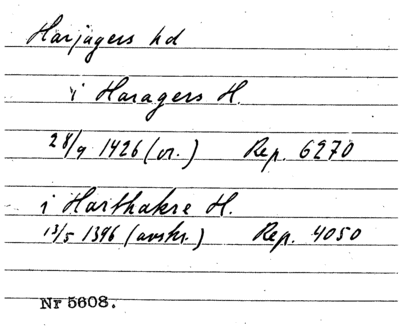 Harjagers hd
i Haragers H.
28/9 1426 (or.) Rep. 6270
i Harthakre H.
13/5 1396 (avskr.) Rep. 4050
Nr 5608.